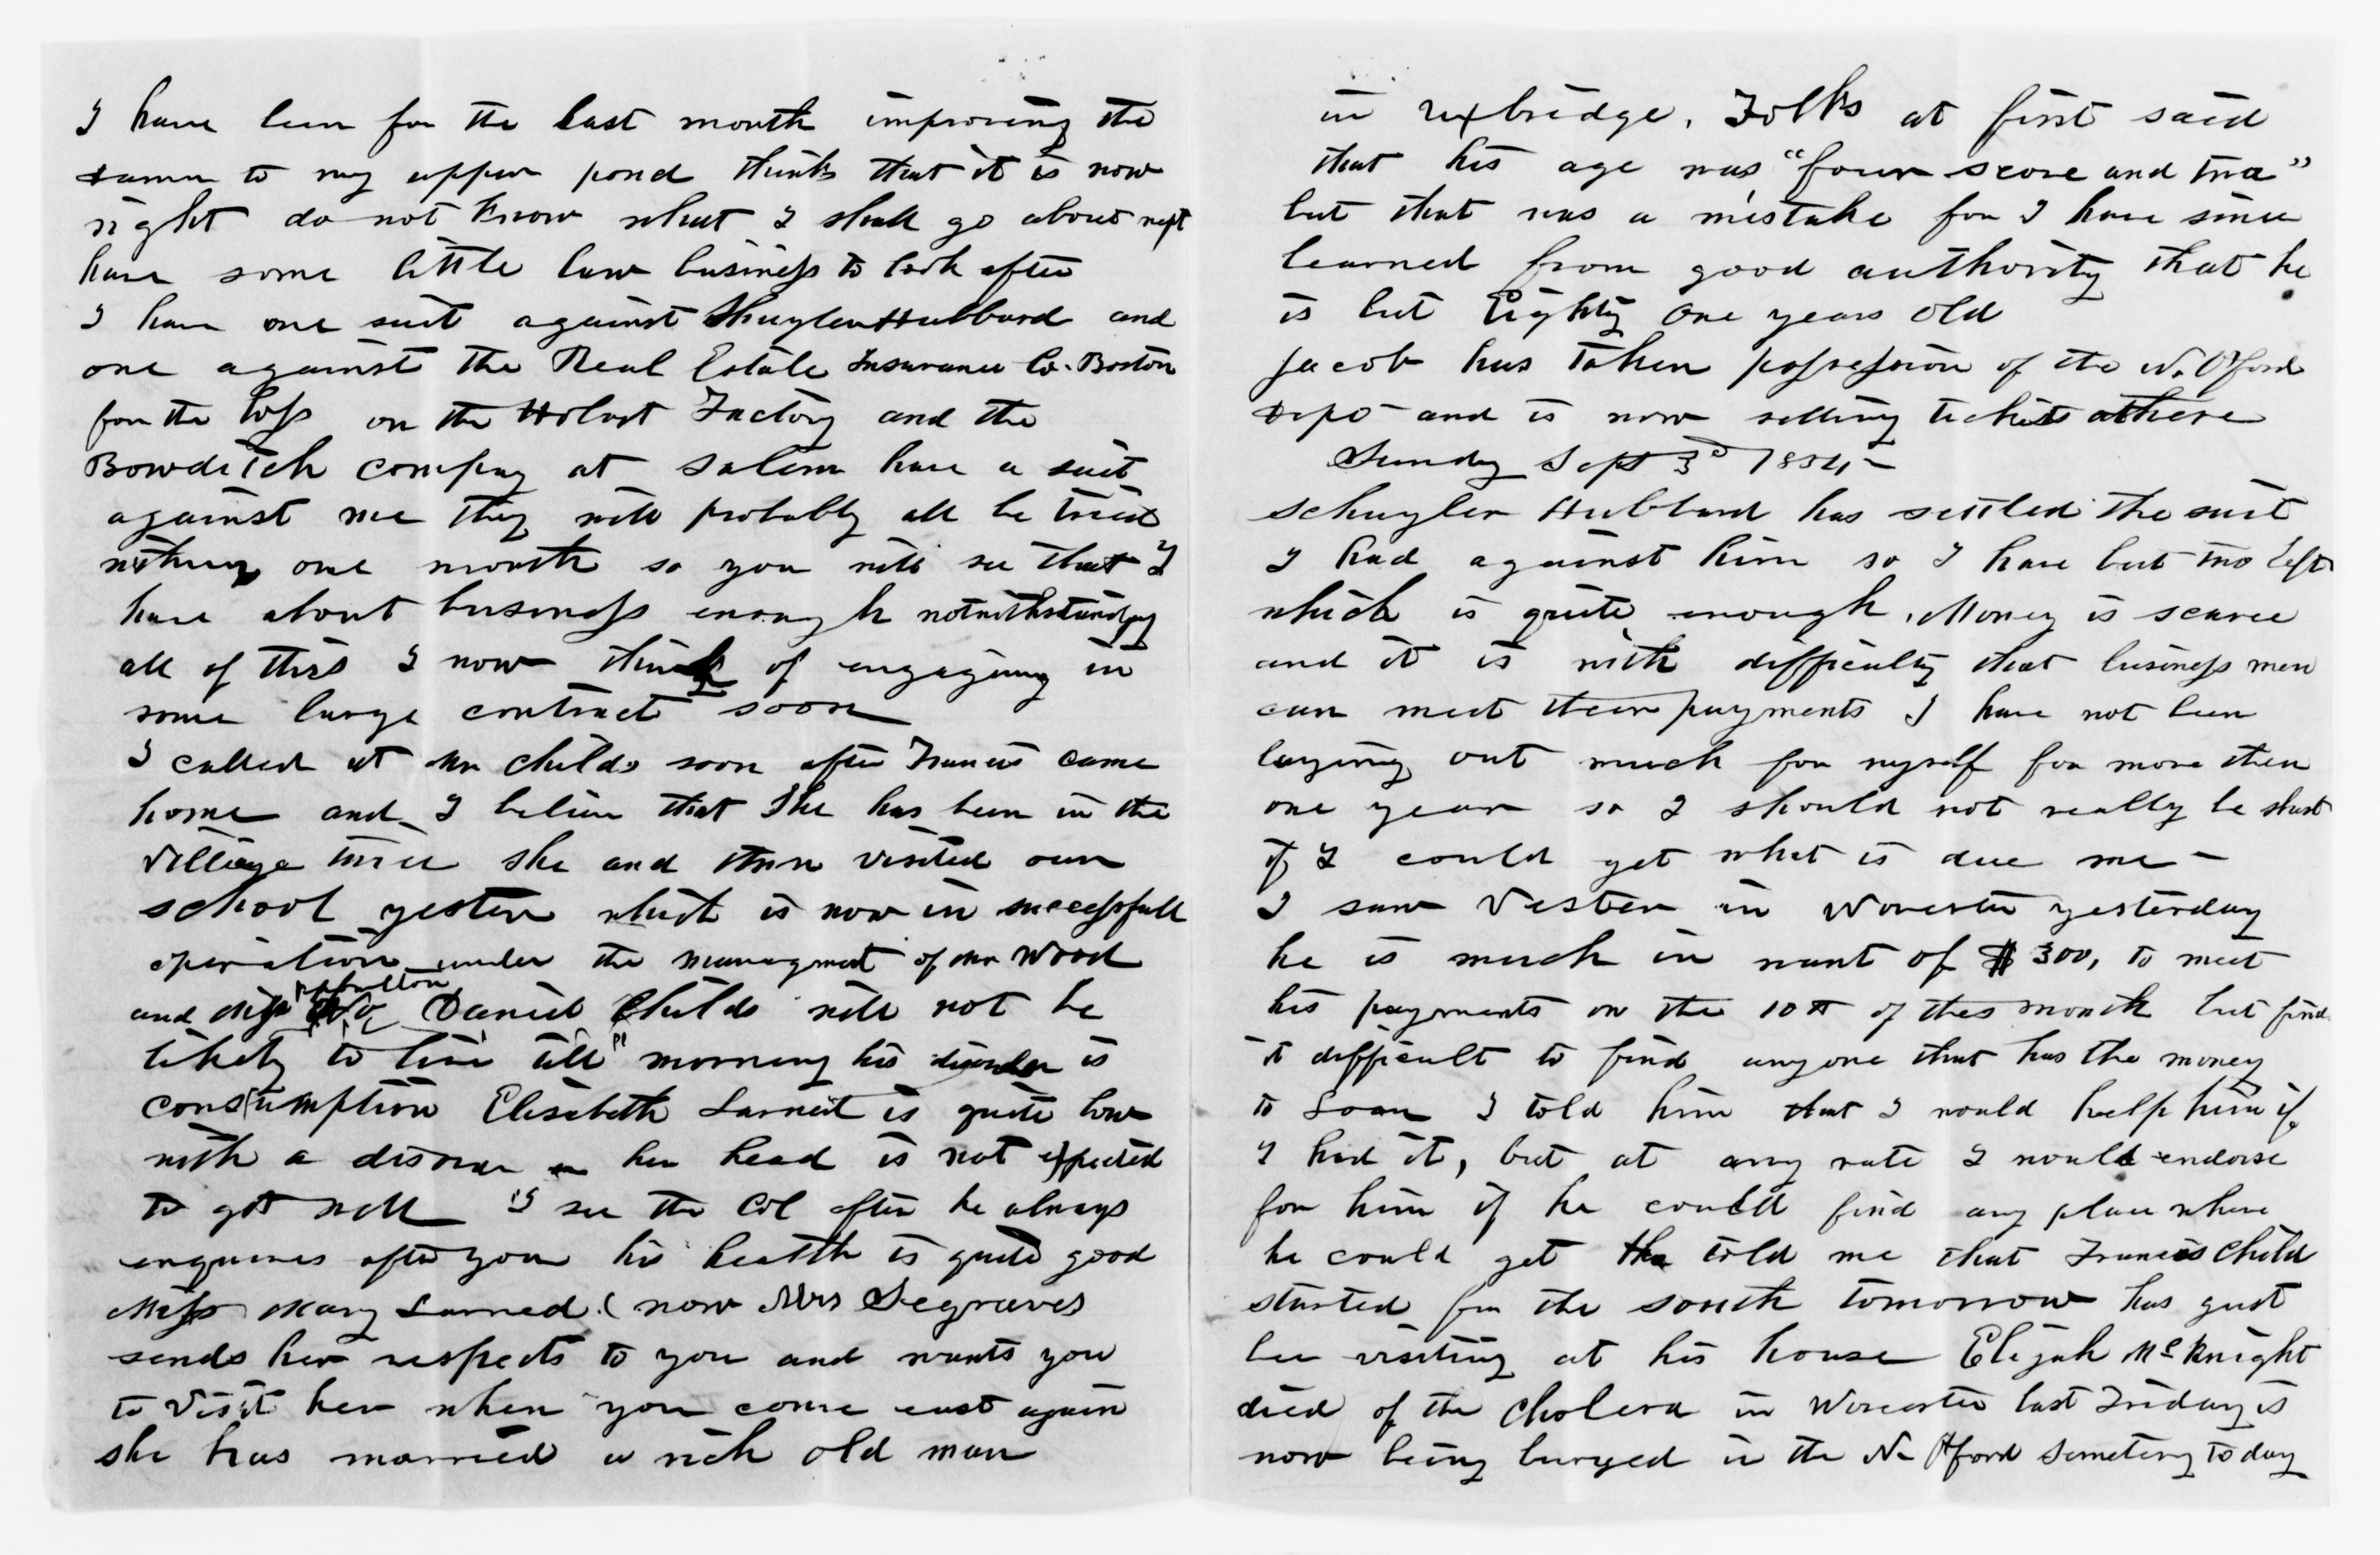 I have been for the last month improving the
damm to my upper pond think that it is now
right do not know what I shall go about next
have some little law business to look after
I have one suit against Shuyler Hubbard and
one against the Real Estate Insurance Co. Boston
for the loss on the Holost Factory and the
Bowditch Compay at Salem have a suit
against me they will probably all be tried
within one month so you will see that I
have about business enough notwithstanding
all of this I now think of engaging in
some large contract soon
I called at Mr Childs soon after Francis came
home and I believe that She has been in the
Village twice she and visited our
school yester which is now in successfull
operation under the managment of Mr Wood
and Miss Daniel Childs will not be
likely to live till morning his disorder is
consumption Elisebeth Larned is quite low
with a disorder in her head is not expected
to get well I see the Col often he always
enquires after you his health is quite good
Miss Mary Larned (now Mrs Segraves
sends her respects to you and wants you
to Visit her when you come east again
she has married a rich old man
in Uxbridge. Folks at first said
that his age was "four score and two"
but that was a mistake for I have since
learned from good authority that he
is but Eighty One years old
Jacob has taken possession of the N. Oxford
Depo and is now selling tickets there
Sunday Sept 3d 1854
Schuyler Hubbard has settled the suit
I had against him so I have but two left
which is quite enough. Money is scarce
and it is with difficulty that business men
can meet their payments I have not been
laying out much for myself for more then
one year so I should not really be short
if I could get what is due me –
I saw Vester in Worcester yesterday
he is much in want of $300, to meet
his payments on the 10th of this month but find
it difficult to find any one that has the money
to Loan I told him that I would help him if
I had it, but at any rate I would endorse
for him if he could find any place where
he could get told me that Francis Child
started for the south tomorrow has gust
bee visiting at his house Elijah McKnight
died of the Cholera in Worcester last Friday is
now being buryed in the N Oxford Semetery to day